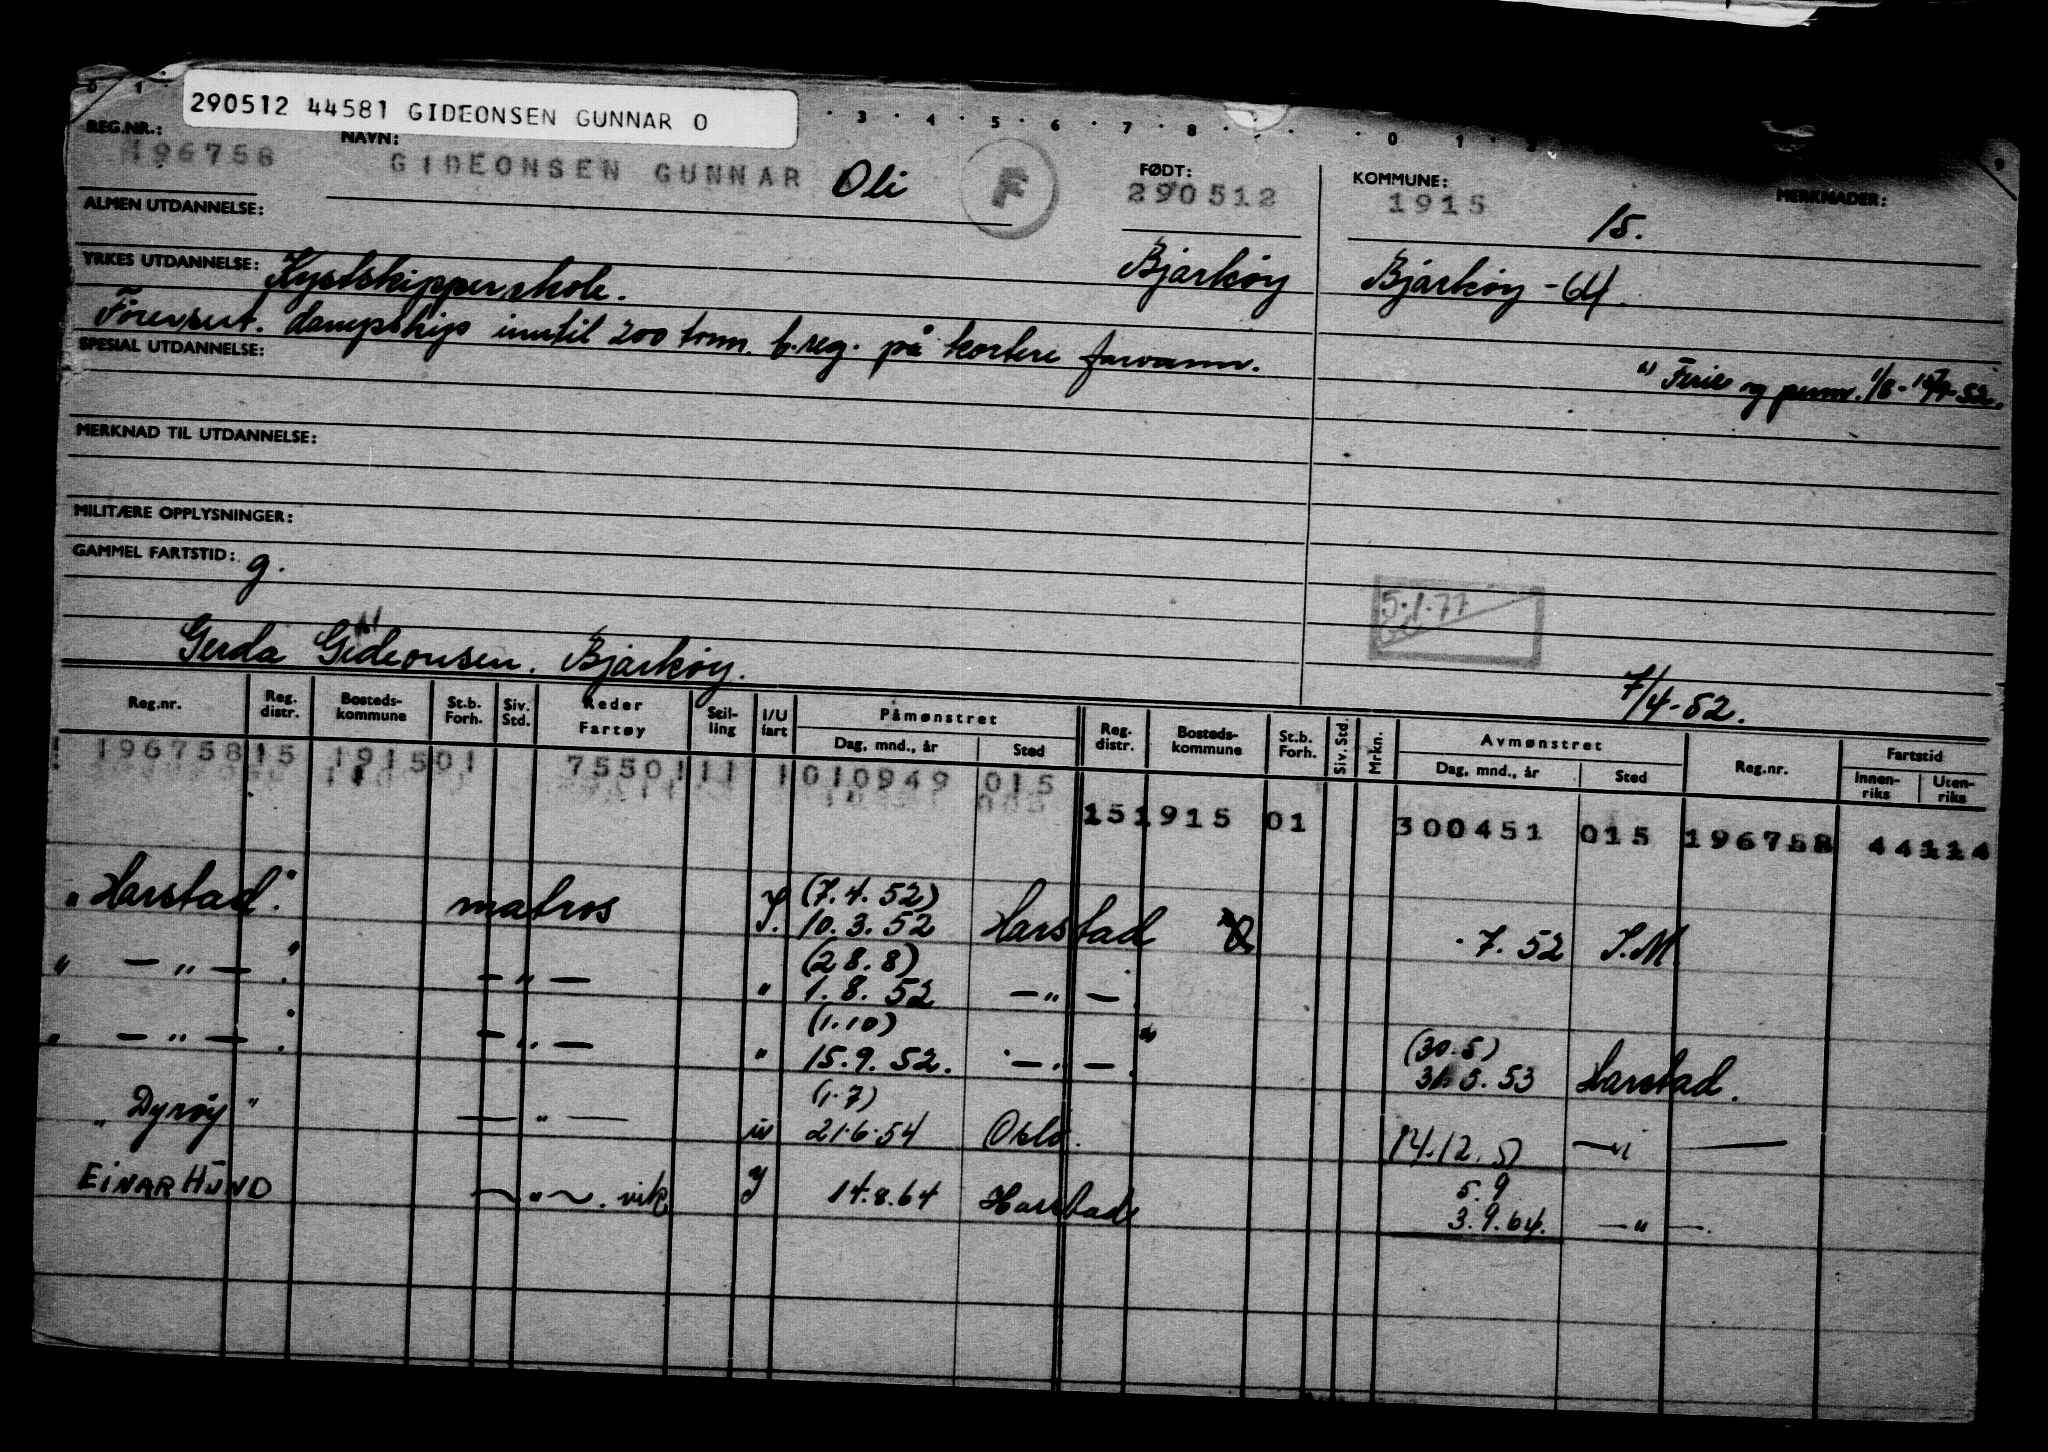 290512 44581 GIDEONSEN GUNNAR O
0 1 . 3 . 4 . 5 6 . 7 . 8 . . . 0 1 9
REG.NR.: NAVN: FØDT: KOMMUNE: MERKNADER:
196758 GIDEONSEN GUNNAR Oli F 290512 1915 15.
ALMEN UTDANNELSE:
YRKES UTDANNELSE: Kystskipperskole. Bjarkøy Bjarkøy - 64.
Förersert. dampskips inntil 200 tonn. b.reg. på kortere farvann.
SPESIAL UTDANNELSE: Ferie og perm. 1/8-
MERKNAD TIL UTDANNELSE:
MILITÆRE OPPLYSNINGER:
GAMMEL FARTSTID: g.
5.1.77
Gerda Gideonsen. Bjarkøy.
7/4-52.
Reg.nr. Reg. distr. Bosteds-kommune St.b. Forh. Siv. Std. Reder Fartøy Stil-ling I/U fart Påmønstret Reg. distr. Bosteds-kommune St.b. Forh. Siv. Std. Mrkn. Avmønstret Reg.nr. Fartstid
Dag, mnd., år Sted Dag, mnd., år Sted Innen-riks Uten-riks
196758 15 1915 01 75501 11 1 010949 015
15 1915 01 300451 015 196758 44114
(7.4.52)
"Harstad". matros J. 10.3.52 Harstad .7.52 S.M
(28.8)
" — " — ". — " — " 1.8.52 — " — .
(1.10) (30.5)
" — " — ". — " — " 15.9.52. — " — . 5.53 Harstad.
(1.7)
"Dyrøy" — " — u 21.6.54 Oslo. 14.12. — " —
5.9
EINAR HUND — " — . vik J 14.8.64 Harstad 3.9.64. — " — .